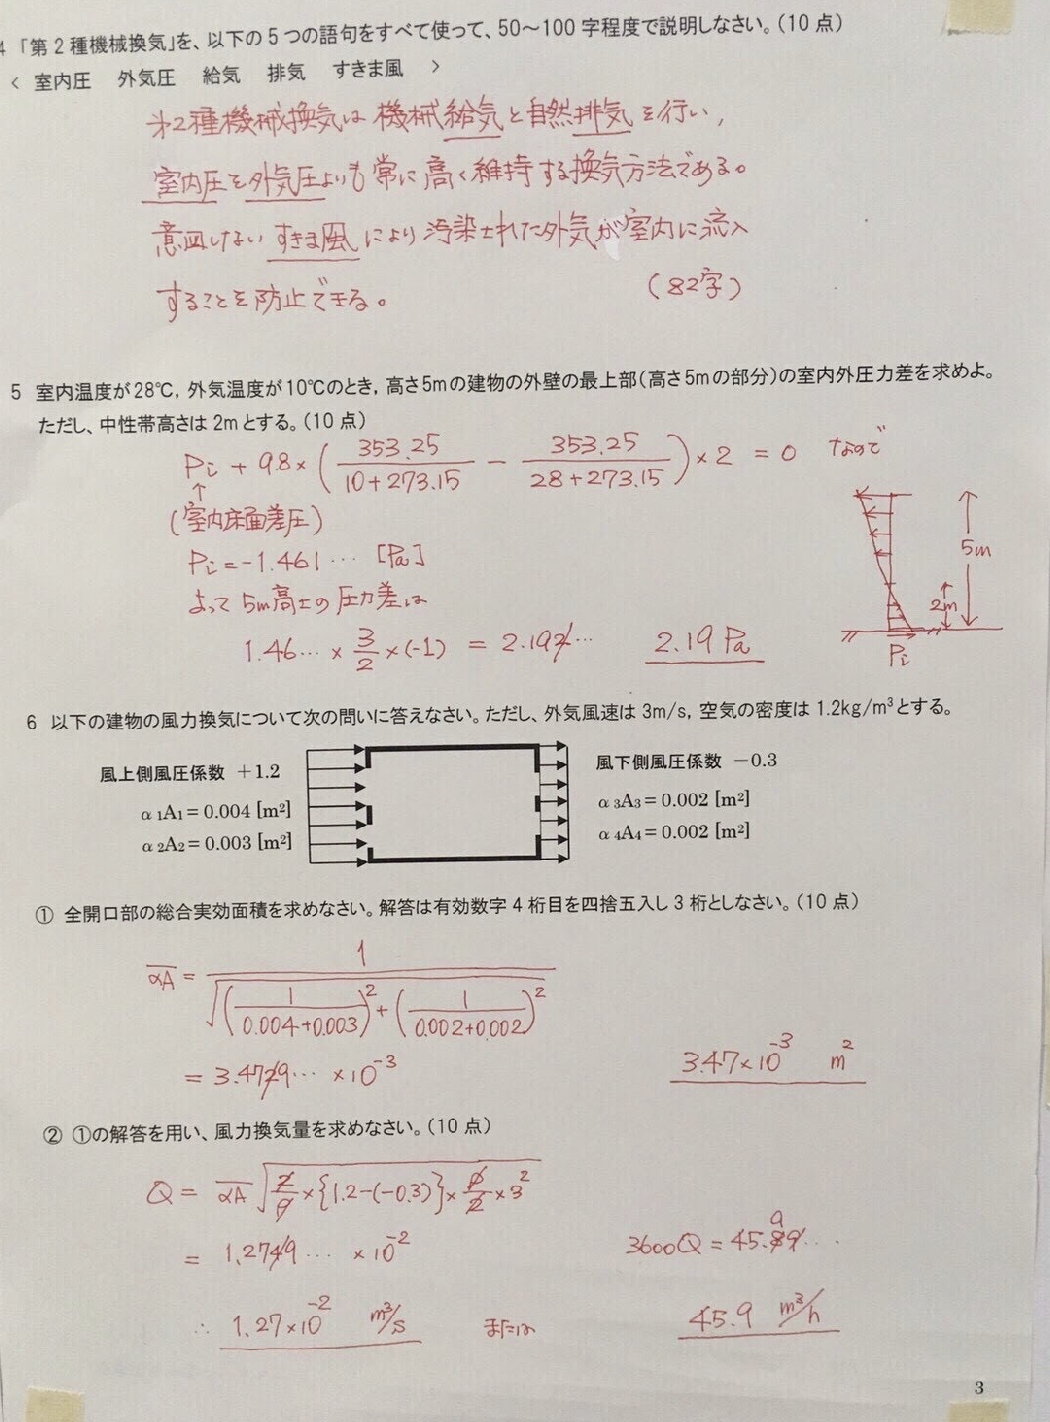 4 「第2種機械換気」を、以下の5つの語句をすべて使って、50～100字程度で説明しなさい。(10点)
＜ 室内圧 外気圧 給気 排気 すきま風 ＞
第2種機械換気は機械給気と自然排気を行い,
室内圧を外気圧よりも常に高く維持する換気方法である。
意図しないすきま風により汚染された外気が室内に流入
することを防止できる。 (82字)
5 室内温度が28℃, 外気温度が10℃のとき, 高さ5mの建物の外壁の最上部(高さ5mの部分)の室内外圧力差を求めよ。
ただし、中性帯高さは2mとする。(10点)
Pi + 9.8 × ( 353.25 / 10+273.15 − 353.25 / 28+273.15 ) × 2 = 0 なので
↑
(室内床面差圧)
Pi = -1.461… [Pa]
よって 5m高さの圧力差は
1.46… × 3/2 × (-1) = 2.192… 2.19 Pa
5m
2m
Pi
6 以下の建物の風力換気について次の問いに答えなさい。ただし、外気風速は3m/s, 空気の密度は1.2kg/m³とする。
風上側風圧係数 +1.2
α₁A₁=0.004 [m²]
α₂A₂=0.003 [m²]
風下側風圧係数 −0.3
α₃A₃=0.002 [m²]
α₄A₄=0.002 [m²]
① 全開口部の総合実効面積を求めなさい。解答は有効数字4桁目を四捨五入し3桁としなさい。(10点)
αA = 1 / √( (1 / 0.004+0.003)² + (1 / 0.002+0.002)² )
= 3.4729… ×10⁻³ 3.47×10⁻³ m²
② ①の解答を用い、風力換気量を求めなさい。(10点)
Q = αA √( 2/ρ × {1.2-(-0.3)} × ρ/2 × 3² )
= 1.2749… ×10⁻² 3600Q = 45.89…
9
∴ 1.27×10⁻² m³/s または 45.9 m³/h
3